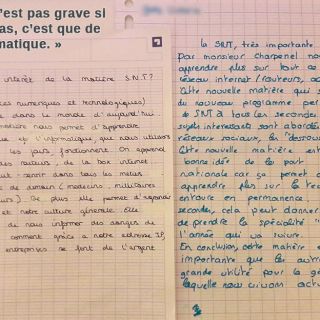 'est pas grave si
as, c'est que de
matique. »
intérêt de la matière S.N.T ?
ces numériques et technologiques)
dans le monde d'aujourd'hui
nous permet d'apprendre
et l'informatique que nous utilisons
les faits fonctionnent. On apprend
des routeurs, de la box internet
servir dans tous les métiers
de demain (médecins, militaires
De plus elle permet d'agrandir
et notre culture générale. Elle
de nous informer des dangers de
comment grâce à notre adresse IP,
entreprises se font de l'argent
la SNT, très importante
Par monsieur Charpenel nous
apprendre plus sur tout ce
réseau internet (routeurs,
Cette nouvelle matière qui
du nouveau programme per
SNT à tous les secondes
sujets intéressants sont abordés
réseaux sociaux, les
Cette nouvelle matière est
bonne idée de la part
nationale car ça permet
apprendre plus sur la
entoure en permanence,
seconde, cela peut donner
de prendre la spécialité
l'année qui va suivre.
En conclusion, cette matière e
importante que les autres
grande utilité pour la gé
laquelle nous vivons actu